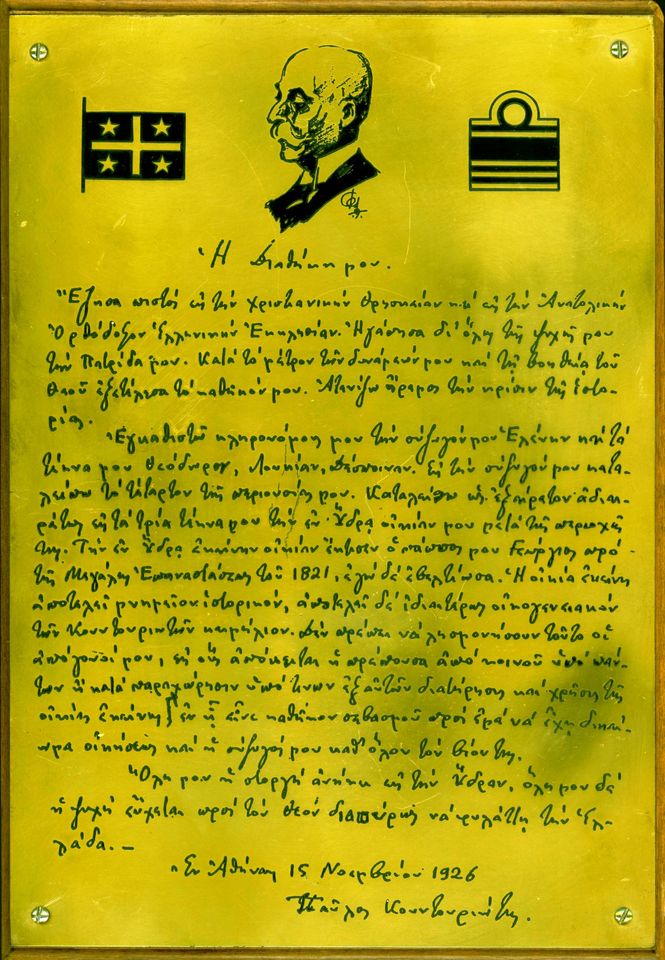 Ἡ Διαθήκη μου.
Ἔζησα πιστὸς εἰς τὴν χριστιανικὴν θρησκείαν καὶ εἰς τὴν Ἀνατολικὴν
Ὀρθόδοξον Ἑλληνικὴν Ἐκκλησίαν. Ἠγάπησα δι' ὅλης τῆς ψυχῆς μου
τὴν Πατρίδα μου. Κατὰ τὸ μέτρον τῶν δυνάμεών μου καὶ τῇ βοηθείᾳ τοῦ
Θεοῦ ἐξετέλεσα τὸ καθῆκόν μου. Ἀτενίζω ἤρεμος τὴν κρίσιν τῆς Ἱστο-
ρίας.
Ἐγκαθιστῶ κληρονόμους μου τὴν σύζυγόν μου Ἑλένην καὶ τὰ
τέκνα μου Θεόδωρον, Λουκίαν, Δέσποιναν. Εἰς τὴν σύζυγόν μου κατα-
λείπω τὸ τέταρτον τῆς περιουσίας μου. Καταλείπω ὡς ἐξαίρετον ἀδιαι-
ρέτως εἰς τὰ τρία τέκνα μου τὴν ἐν Ὕδρᾳ οἰκίαν μου μετὰ τῆς περιοχῆς
της. Τὴν ἐν Ὕδρᾳ ἐκείνην οἰκίαν ἔκτισεν ὁ πάππος μου Γεώργιος πρὸ
τῆς Μεγάλης Ἐπαναστάσεως τοῦ 1821, ἐγὼ δὲ ἐβελτίωσα. Ἡ οἰκία ἐκείνη
ἀποτελεῖ μνημεῖον ἱστορικόν, ἀποτελεῖ δὲ ἰδιαιτέρως οἰκογενειακὸν
τῶν Κουντουριωτῶν κειμήλιον. Δὲν πρέπει νὰ λησμονήσουν τοῦτο οἱ
ἀπόγονοί μου, εἰς οὓς ἀπόκειται ἡ πρέπουσα ἀπὸ κοινοῦ ὑπὸ πάν-
των ἢ κατὰ παραχώρησιν ὑπό τινων ἐξ αὐτῶν διατήρησις καὶ χρῆσις τῆς
οἰκίας ἐκείνης ἐν ᾗ εἶνε καθῆκον σεβασμοῦ πρὸς ἐμὲ νὰ ἔχῃ δικαί-
ωμα οἰκήσεως καὶ ἡ σύζυγός μου καθ' ὅλον τὸν βίον της.
Ὅλη μου ἡ στοργὴ ἀνήκει εἰς τὴν Ὕδραν, ὅλη μου δὲ
ἡ ψυχὴ εὔχεται πρὸς τὸν Θεὸν διαπύρως νὰ φυλάττῃ τὴν Ἑλ-
λάδα. —
Ἐν Ἀθήναις 15 Νοεμβρίου 1926
Παῦλος Κουντουριώτης.